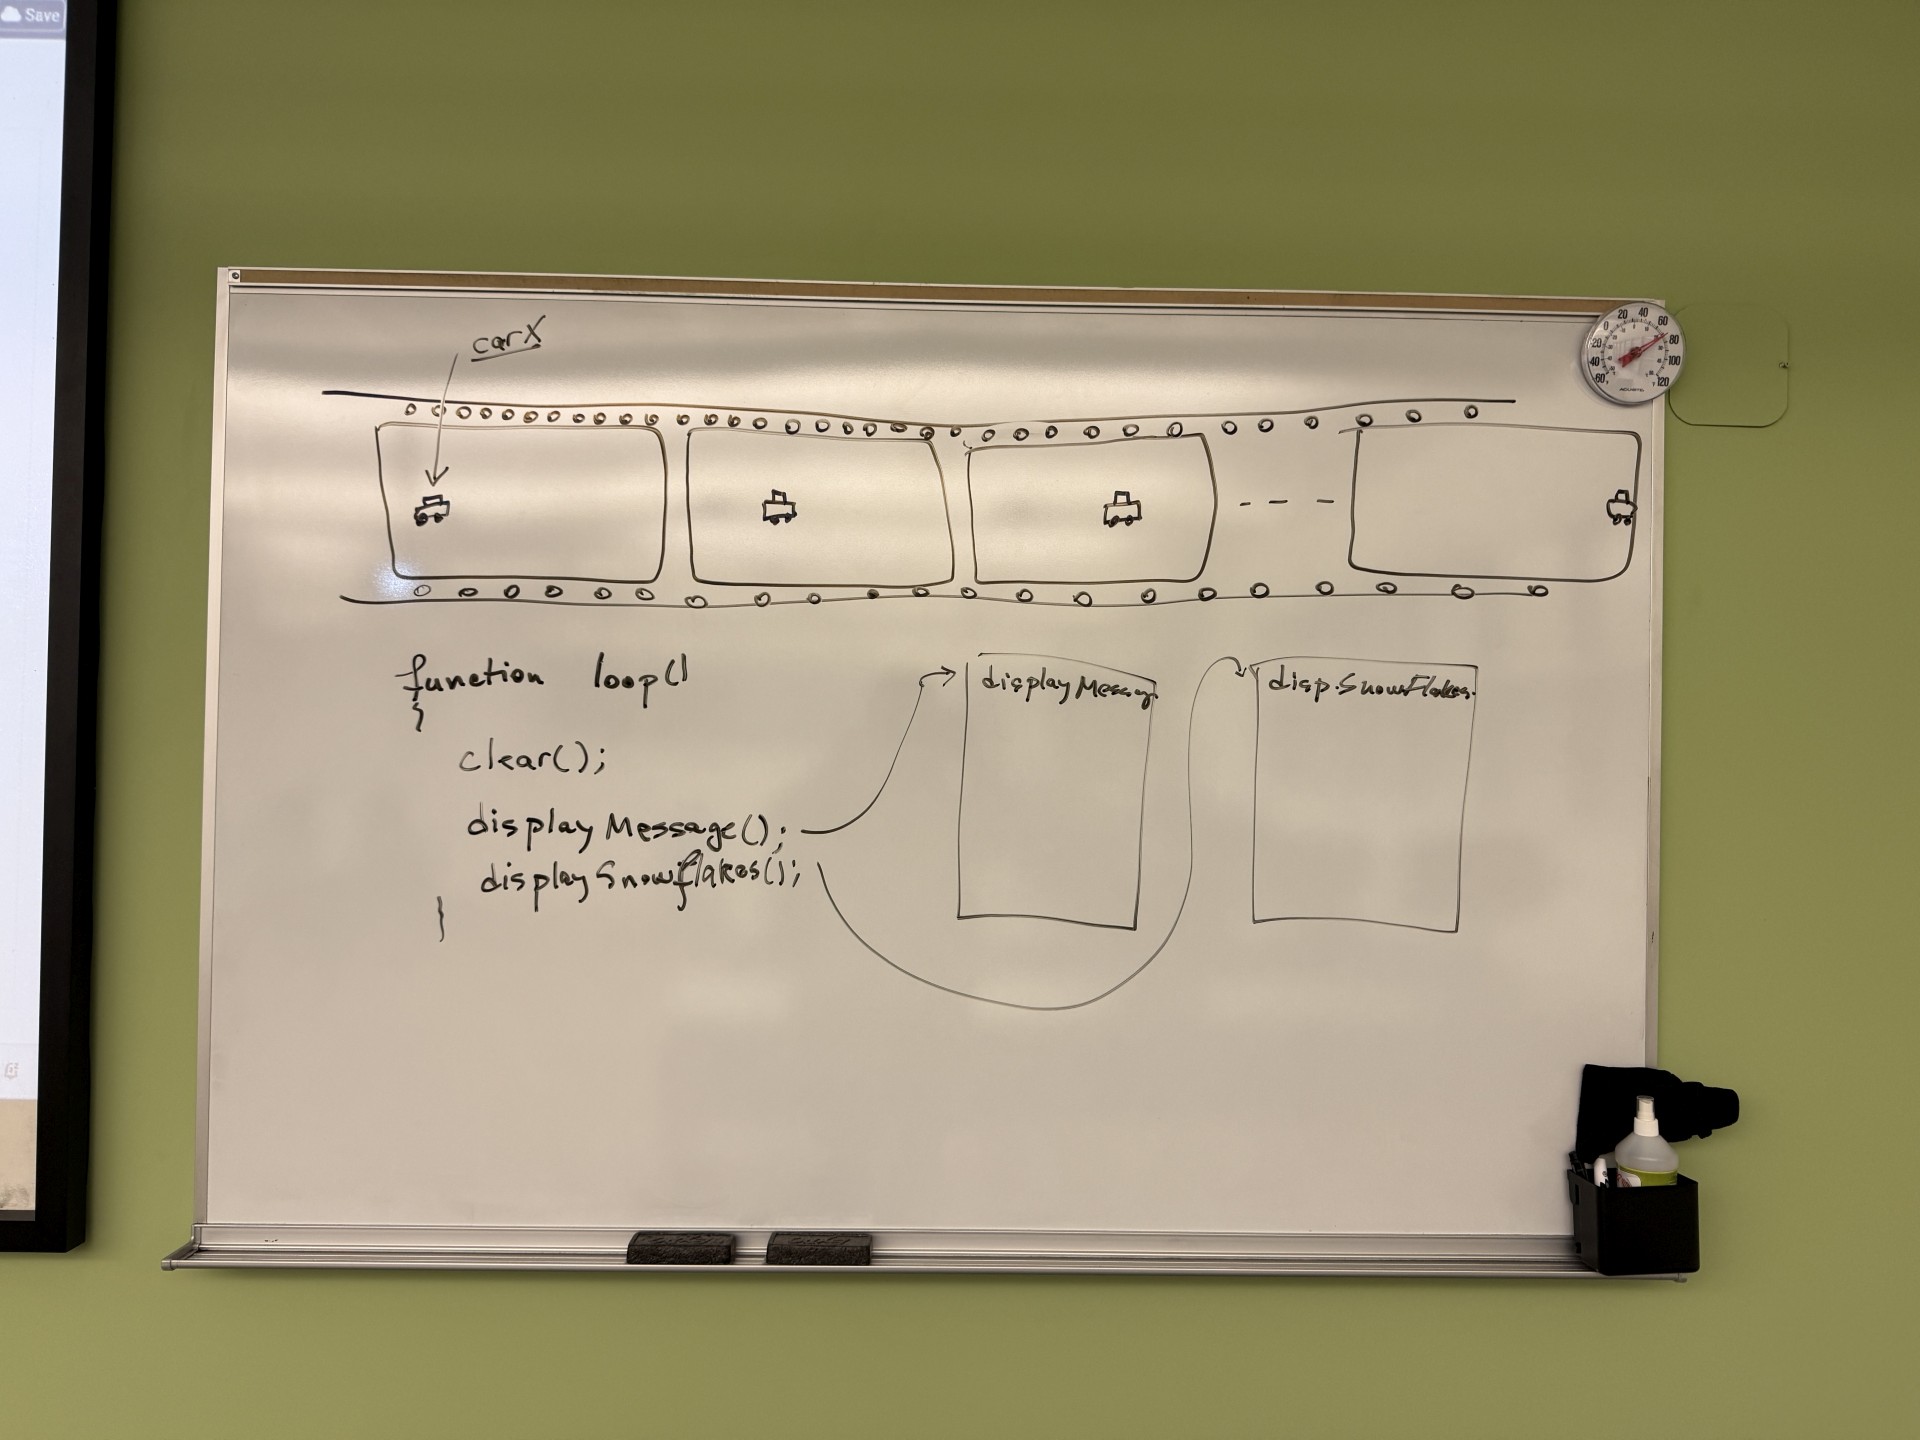 Save
carX
function loop()
{
clear();
displayMessage();
displaySnowflakes();
}
displayMessag.
disp.SnowFlakes.
60 40 20 0 20 40 60 80 100 120
ACURITE